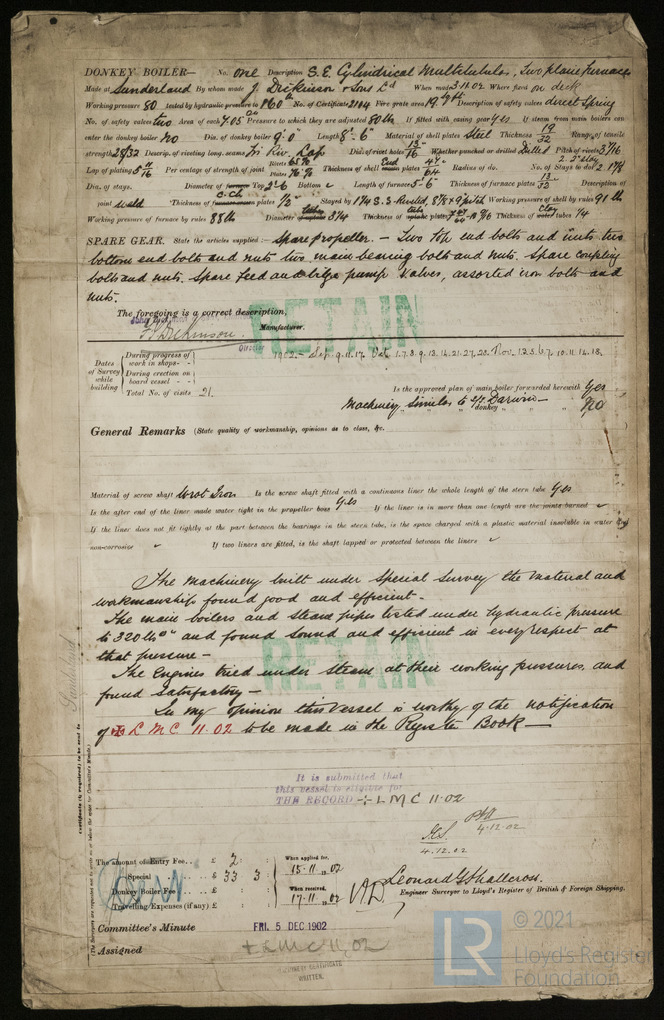 DONKEY BOILER— No. One Description S.E. Cylindrical Multitubular, Two plane Furnaces
Made at Sunderland By whom made J. Dickinson & Sons Ld When made 3.11.02 Where fixed on deck
Working pressure 80 tested by hydraulic pressure to 160 lb No. of Certificate 2104 Fire grate area 19.9 Description of safety valves direct Spring
No. of safety valves two Area of each 7.05 Pressure to which they are adjusted 80 lb If fitted with easing gear yes If steam from main boilers can
enter the donkey boiler no Dia. of donkey boiler 9'-0" Length 8'-6" Material of shell plates Steel Thickness 19/32 Range of tensile
strength 28/32 Descrip. of riveting long. seams Tri Riv. Lap Dia. of rivet holes 13/16 Whether punched or drilled Drilled Pitch of rivets 3 7/16
Lap of plating 5 11/16 Per centage of strength of joint Rivets Plates Thickness of shell End plates Radius of do. No. of Stays to do.
Dia. of stays. Diameter of furnace Top 2'-6 Bottom Length of furnace 5'-6" Thickness of furnace plates 13/32 Description of
joint weld Thickness of furnace C.Ch plates 1/2" Stayed by Working pressure of shell by rules 91 lb
Working pressure of furnace by rules 88 lb Diameter of tube 3 1/4 Thickness of tube plates Thickness of water tubes 1/4
SPARE GEAR. State the articles supplied:— Spare propeller. — Two top end bolts and nuts two
bottom end bolts and nuts two main bearing bolts and nuts. Spare coupling
bolts and nuts. Spare feed and bilge pump valves, assorted iron bolts and
nuts.
The foregoing is a correct description,
Dickinson Manufacturer.
Director
RETAIN
Dates of Survey while building
During progress of work in shops- - 1902.- Sep. 9.11.17. Oct. 1.7.8.9.13.14.21.27.28. Nov. 1.3.5.6.7.10.11.14.18.
During erection on board vessel - -
Total No. of visits 21.
Is the approved plan of main boiler forwarded herewith yes
Machinery Similar to s/s Darwin — " " donkey " " " No
General Remarks (State quality of workmanship, opinions as to class, &c.
Material of screw shaft Wrot Iron Is the screw shaft fitted with a continuous liner the whole length of the stern tube yes
Is the after end of the liner made water tight in the propeller boss yes If the liner is in more than one length are the joints burned
If the liner does not fit tightly at the part between the bearings in the stern tube, is the space charged with a plastic material insoluble in water and
non-corrosive If two liners are fitted, is the shaft lapped or protected between the liners
The Machinery built under Special Survey the material and
workmanship found good and efficient.
The main boilers and steam pipes tested under hydraulic pressure
to 320 lbs and found sound and efficient in every respect at
that pressure —
The Engines tried under steam at their working pressures and
found satisfactory —
RETAIN
In my opinion this Vessel is worthy of the notification
of L M C 11.02 to be made in the Register Book —
It is submitted that
this vessel is eligible for
THE RECORD + L M C 11.02
4.12.02
4.12.02
The amount of Entry Fee.. £ 2 : :
Special .. .. £ 33 : 3 :
Donkey Boiler Fee .. .. £ : :
Travelling Expenses (if any) £ : :
When applied for, 15.11.1902
When received, 17.11.1902
Leonard G Shallcross.
Engineer Surveyor to Lloyd's Register of British & Foreign Shipping.
Committee's Minute FRI. 5 DEC 1902
Assigned + LMC 11,02
MACHINERY CERTIFICATE
WRITTEN.
Certificate (if required) to be sent to Sunderland
(The Surveyors are requested not to write on or below the space for Committee's Minute.)
© 2021
LR
Lloyd's Register
Foundation